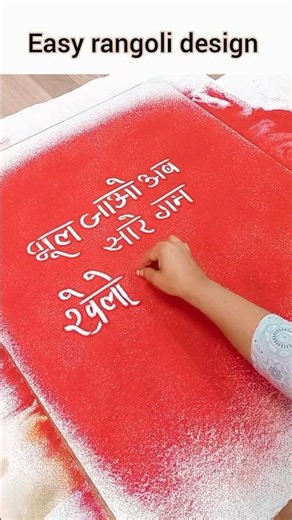 Easy rangoli design
भूल जाओ अब
सारे गम
खेलो